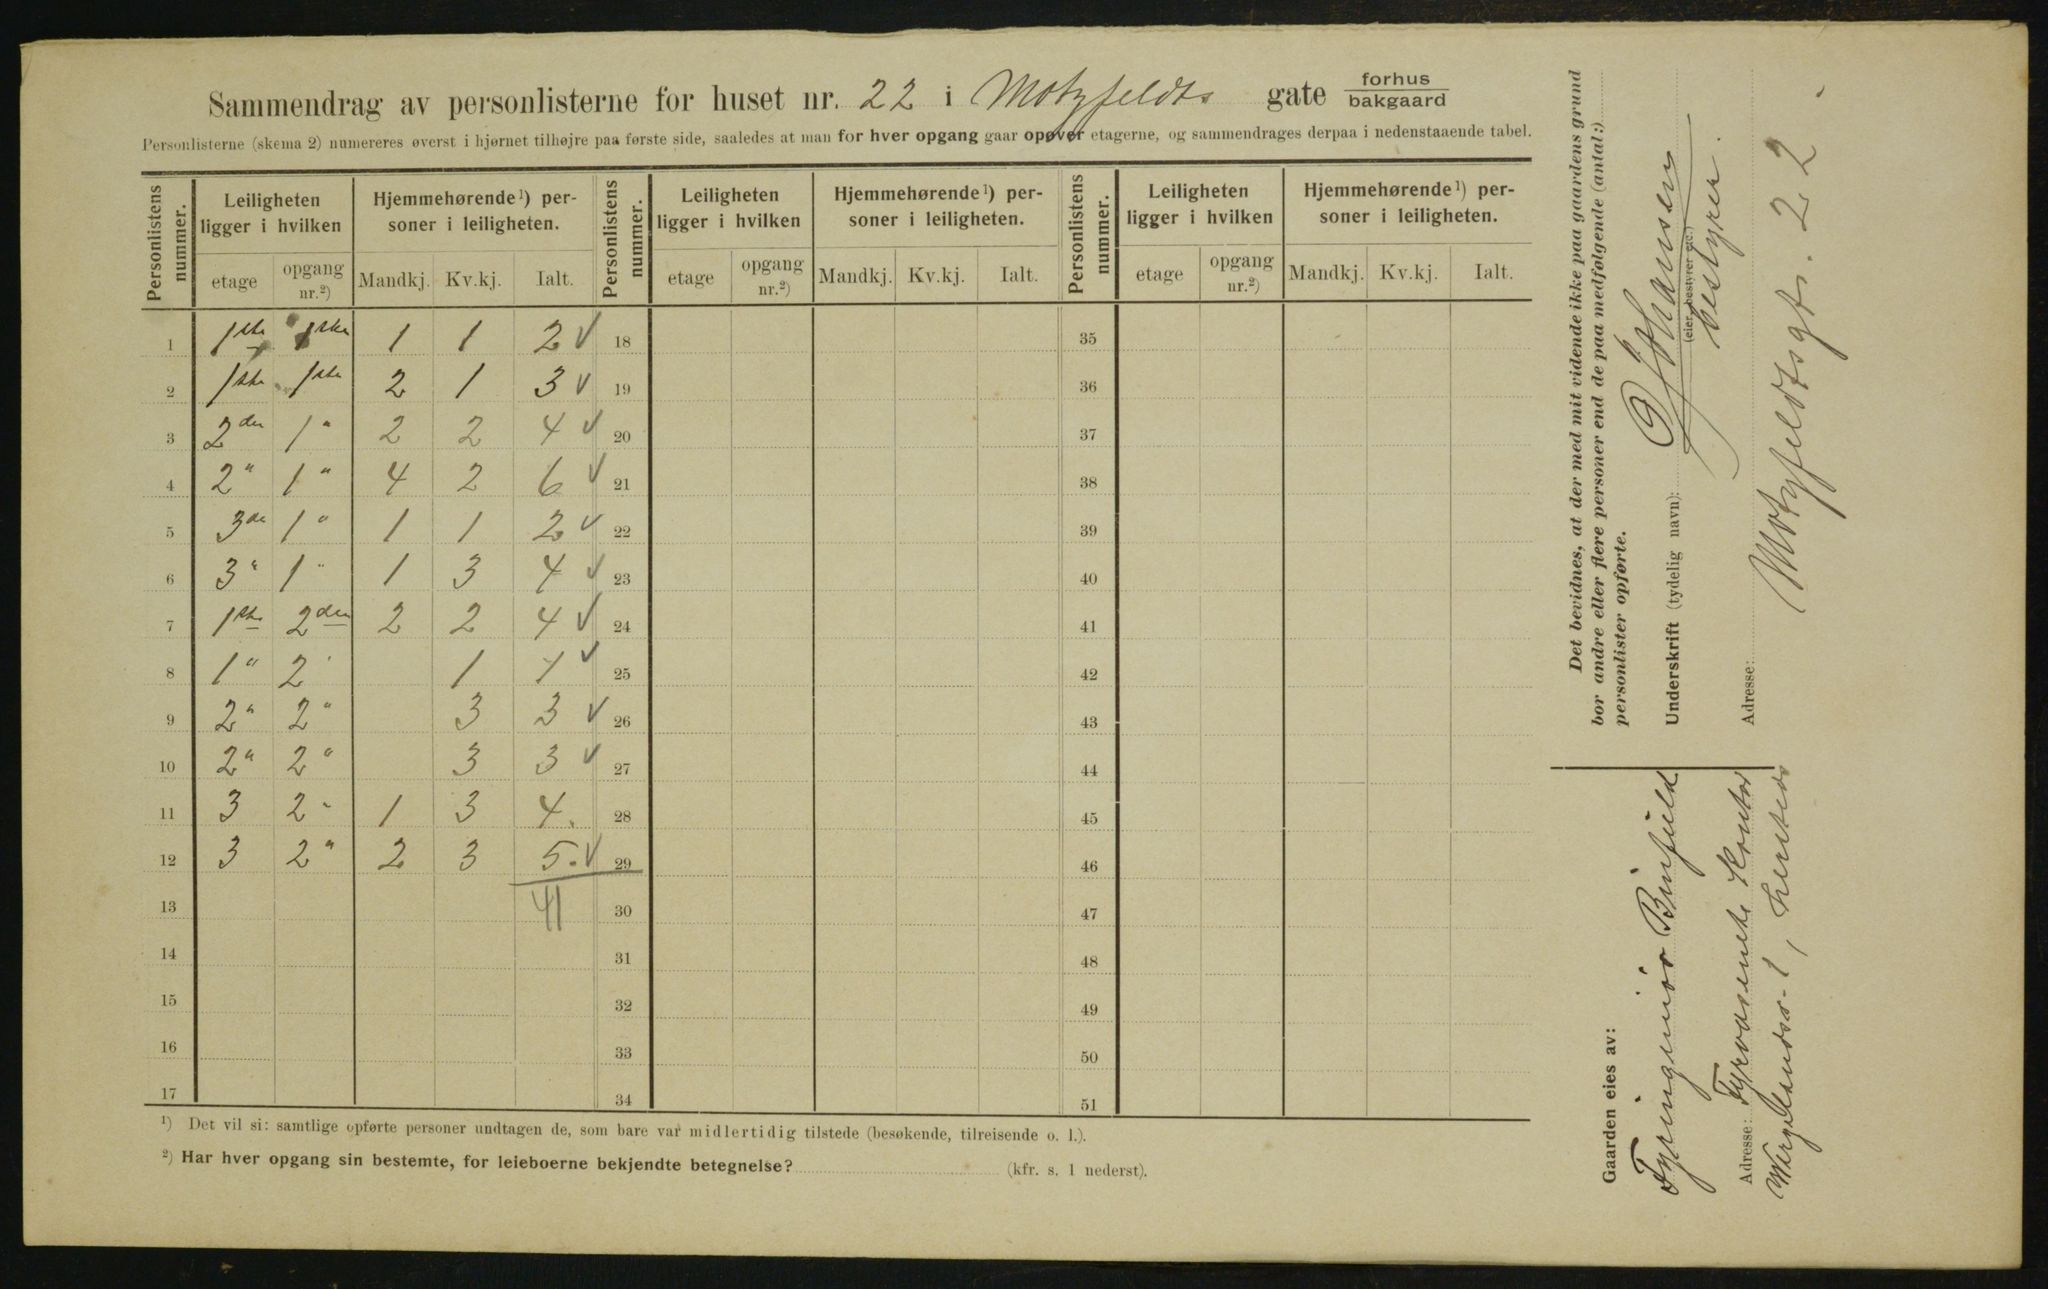 Sammendrag av personlisterne for huset nr. 22 i Motzfeldts gate forhus
bakgaard
Personlisterne (skema 2) numereres øverst i hjørnet tilhøjre paa første side, saaledes at man for hver opgang gaar opover etagerne, og sammendrages derpaa i nedenstaaende tabel.
Personlistens nummer. Leiligheten ligger i hvilken Hjemmehørende¹) personer i leiligheten. Personlistens nummer. Leiligheten ligger i hvilken Hjemmehørende¹) personer i leiligheten. Personlistens nummer. Leiligheten ligger i hvilken Hjemmehørende¹) personer i leiligheten.
etage opgang nr.²) Mandkj. Kv.kj. Ialt. etage opgang nr.²) Mandkj. Kv.kj. Ialt. etage opgang nr.²) Mandkj. Kv.kj. Ialt.
1 1ste 1ste 1 1 2 √ 18 35
2 1ste 1ste 2 1 3 √ 19 36
3 2den 1" 2 2 4 √ 20 37
4 2" 1" 4 2 6 √ 21 38
5 3de 1" 1 1 2 √ 22 39
6 3" 1" 1 3 4 √ 23 40
7 1ste 2den 2 2 4 √ 24 41
8 1" 2" 1 1 √ 25 42
9 2" 2" 3 3 √ 26 43
10 2" 2" 3 3 √ 27 44
11 3 2" 1 3 4. 28 45
12 3 2" 2 3 5. √ 29 46
13 41 30 47
14 31 48
15 32 49
16 33 50
17 34 51
¹) Det vil si: samtlige opførte personer undtagen de, som bare var midlertidig tilstede (besøkende, tilreisende o. l.).
²) Har hver opgang sin bestemte, for leieboerne bekjendte betegnelse? (kfr. s. 1 nederst).
Det bevidnes, at der med mit vidende ikke paa gaardens grund
bor andre eller flere personer end de paa medfølgende (antal:)
personlister opførte.
Underskrift (tydelig navn): Johansen
(eier, bestyrer etc.)
bestyrer.
Adresse: Motzfeldtsgt. 22.
Gaarden eies av:
Adresse: Kontor